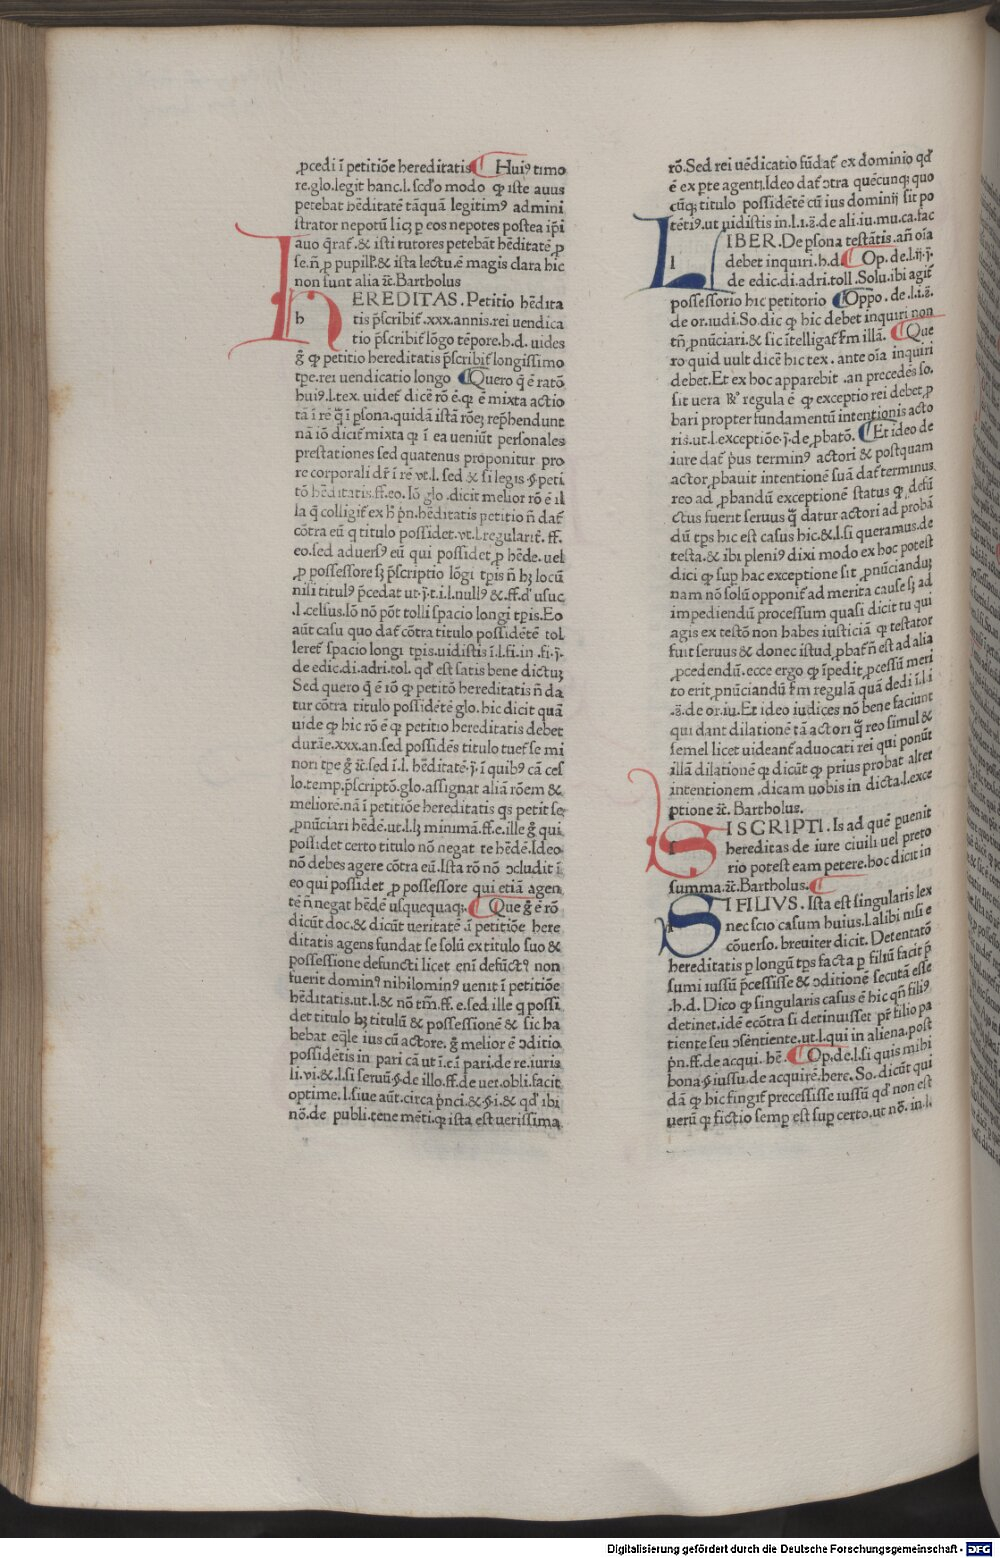 ꝓcedi ī petitiōe hereditatis ¶ Huiꝰ timo
re.glo.legit hanc.l.scďo modo ꝙ iste auus
petebat hēditatē tāquā legitimꝰ admini
strator nepotū licꝫ ꝑ eos nepotes postea ip̄i
auo q̄rat̄.& isti tutores petebāt hēditatē ꝓ
se.n̄ ꝓ pupill'.& ista lectu.ē magis clara hic
non sunt alia ⁊c̄. Bartholus
HEREDITAS. Petitio hēdita
tis p̄scribit̄.xxx.annis.rei uendica
tio p̄scribit̄ lōgo tēpore.h.d. uides
ḡ ꝙ petitio hereditatis p̄scribit̄ longissimo
tp̄e.rei uendicatio longo ¶ Quero q̄ ē ratō
huiꝰ.l.tex. uidet̄ dicē rō ē.ꝙ ē mixta actio
tā ī rē q̄̄ ī ꝑsona.quidā istā rōeꝫ rep̄hendunt
nā iō dicit̄ mixta ꝙ ī ea ueniūt personales
prestationes sed quatenus proponitur pro
re corporali dr̄ ī rē vt.l. sed & si legis.§.peti
tō hēditatis.ff.eo. Iō glo.dicit melior rō ē il
la q̄ colligit̄ ex h̄ p̄n.hēditatis petitio n̄ dat̄
cōtra eū q titulo possidet.vt.l.regularit̄. ff.
eo.sed aduersꝰ eū qui possidet ꝓ hēde.uel
ꝓ possessore sꝫ p̄scriptio lōgi tp̄is n̄ hꝫ locū
nisi titulꝰ p̄cedat ut.j.t.i.l.nullꝰ &.ff.ď usuc
.l.celsus.Iō nō pōt tolli spacio longi tp̄is.Eo
aūt casu quo dat̄ cōtra titulo possidētē tol
leret̄ spacio longi tp̄is.uidistis ī.l.fi.in .fi.j.
de edic.di.adri.tol. qď est satis bene dictuꝫ
Sed quero q̄ ē rō ꝙ petitō hereditatis n̄ da
tur cōtra titulo possidētē glo.hic dicit quā
uide ꝙ hic rō ē ꝙ petitio hereditatis debet
durāe.xxx.an.sed possidēs titulo tuet̄ se mi
nori tp̄e ḡ ⁊c̄.sed ī.l. hēditatē.j.ī quibꝰ cā ces
lo.temp.p̄scriptō.glo.assignat aliā rōem &
meliorē.nā ī petitiōe hereditatis qs petit se
ꝓnūciari hēdē.ut.l.lꝫ minimā.ff.e.ille ḡ qui
possidet certo titulo nō negat te hēdē.Ideo
nō debes agere cōtra eū.Ista rō nō ↄcludit ī
eo qui possidet ꝓ possessore qui etiā agen
tē n̄ negat hēdē usquequaqꝫ. ¶ Que ḡ ē rō
dicūt doc.& dicūt ueritatē ī petitiōe here
ditatis agens fundat se solū ex titulo suo &
possessione defuncti licet enī defūctꝰ non
fuerit dominꝰ nihilominꝰ uenit ī petitiōe
hēditatis.ut.l.& nō tm̄.ff. e.sed ille q possi
det titulo hꝫ titulū & possessionē & sic ha
bebat eq̄le ius cū actore. ḡ melior ē ↄditio
possidētis in pari cā ut ī.c.ī pari.de re.iuris
li.vi.&.l.si seruū.§.de illo.ff.de uer.obli.facit
optime.l.siue aūt.circa p̄nci.&.§.i.& qď ibi
nō.de publi.tene mēti.ꝙ ista est uerissima
rō.Sed rei uēdicatio fūdat̄ ex dominio qď
ē ex ꝑte agenti.Ideo dat̄ ↄtra quēcunqꝫ quo
cūqꝫ titulo possidētē cū ius dominij sit po
tētiꝰ.ut uidistis in.l.1.⁊.de ali.iu.mu.ca.fac
LIBER. De ꝑsona testātis.an̄ oīa
debet inquiri.h.d. ¶ Op. de.l.ij.j.
de edic.di.adri.toll.Solu.ibi agit̄
possessorio hic petitorio ¶ Oppo.de.l.i.⁊.
de or.iudi.So.dic ꝙ hic debet inquiri non
tn̄ ꝓnūciari.& sic ītelligat̄ fm illā. ¶ Que
ro quid uult dicē hic tex. ante oīa inquiri
debet.Et ex hoc apparebit .an precedēs so.
sit uera & regula ē ꝙ exceptio rei debet ꝓ
bari propter fundamentū intentionis acto
ris.ut.l.exceptiōē.j.de ꝓbatō. ¶ Et ideo de
iure dat̄ p̄us terminꝰ actori & postquam
actor ꝓbauit intentionē suā dat̄ terminus
reo ad ꝓbandū exceptionē status ꝙ defū
ctus fuerit seruus q̄̄ datur actori ad probā
dū tp̄s hic est casus hic.&.l.si queramus.de
testa.& ibi pleniꝰ dixi modo ex hoc potest
dici ꝙ suꝑ hac exceptione sit ꝓnūcianduꝫ
nam nō solū opponit̄ ad merita cause sꝫ ad
impediendū processum quasi dicit tu qui
agis ex testō non habes iusticiā ꝙ testator
fuit seruus & donec istud ꝓbat̄ n̄ est ad alia
ꝓcedendū.ecce ergo ꝙ īpedit ꝓcessū meri
to erit ꝓnūciandū fm regulā quā dedi ī.l.i
.⁊.de or.iu.Et ideo iudices nō bene faciunt
qui dant dilationē tā actori q̄̄ reo simul &
semel licet uideant̄ aduocati rei qui ponūt
illā dilationē ꝙ dicūt ꝙ prius probat alter
intentionem .dicam uobis in dicta.l.exce
ptione ⁊c̄. Bartholus.
SI SCRIPTI. Is ad quē ꝑuenit
hereditas de iure ciuili uel preto
rio potest eam petere.hoc dicit in
summa.⁊c̄.Bartholus. ¶
SI FILIUS. Ista est singularis lex
nec scio casum huius.l.alibi nisi e
cōuerso. breuiter dicit. Detentatō
hereditatis ꝑ longū tp̄s facta ꝑ filiū facit p̄
sumi iussū p̄cessisse & ↄditionē secutā esse
.h.d. Dico ꝙ singularis casus ē hic qn̄ filiꝰ
detinet.idē ecōtra si detinuisset pr̄ filio pa
tiente seu ↄsentiente.ut.l.qui in aliena.post
p̄n.ff.de acqui.hē. ¶ Op.de.l.si quis mihi
bona.§.iussu.de acquirē.here. So.dicūt qui
dā ꝙ hic fingit̄ precessisse iussū qď non est
uerū ꝙ fictio semꝑ est suꝑ certo.ut nō. in.l.
Digitalisierung gefördert durch die Deutsche Forschungsgemeinschaft - DFG